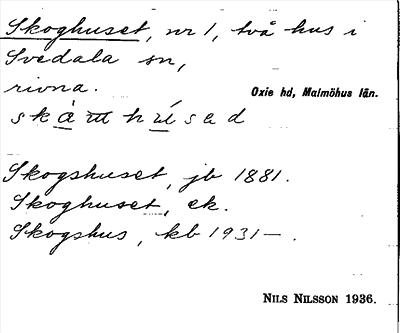 Skoghuset, nr 1, två hus i
Svedala sn,
rivna.
Oxie hd, Malmöhus län.
Skogshuset, jb 1881.
Skoghuset, ek.
Skogshus, kb 1931— .
NILS NILSSON 1936.